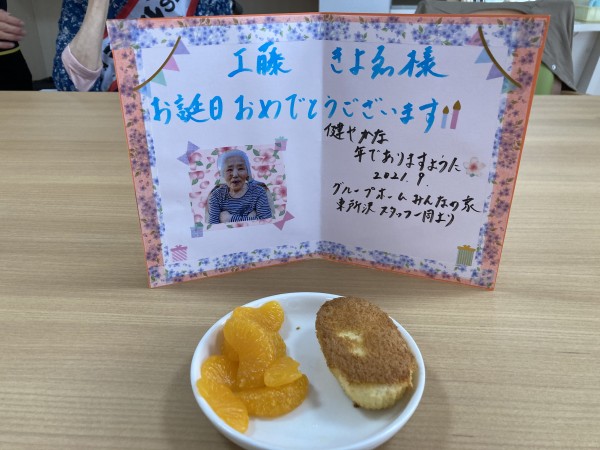 工藤 きよゑ様
お誕生日おめでとうございます!!
健やかな
年でありますように
2021.9.
グループホームみんなの家
東所沢 スタッフ一同より